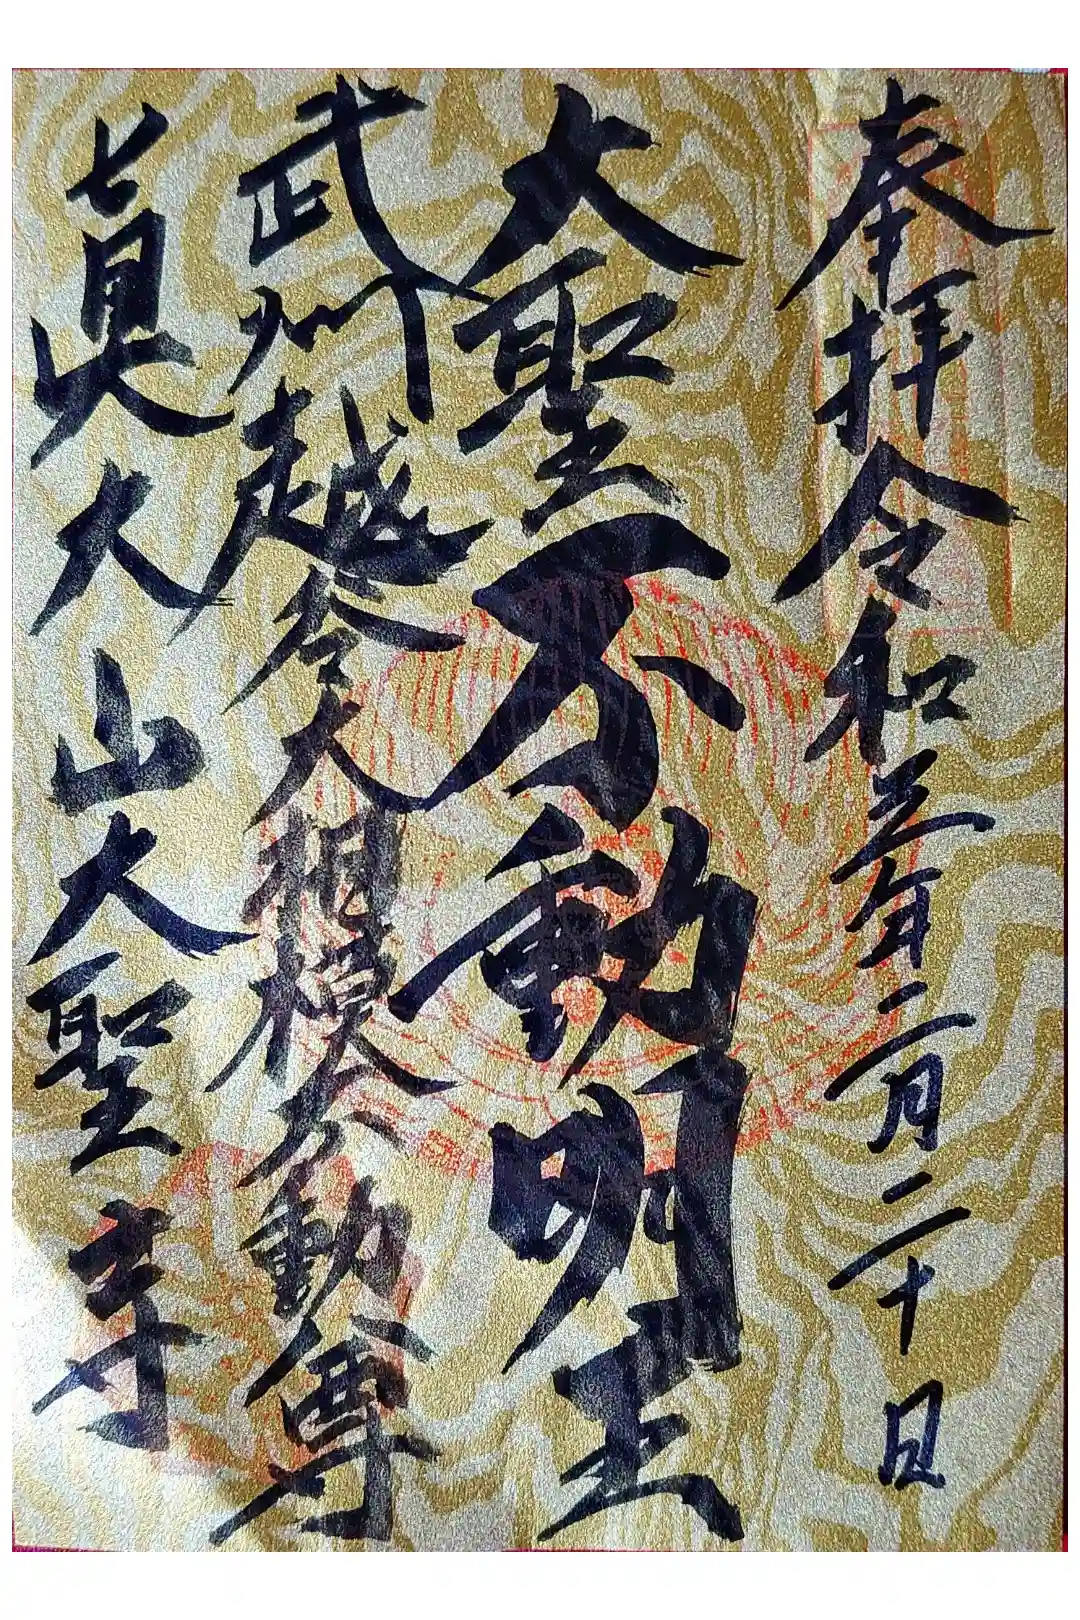 奉拝 令和三年二月二十日
大聖不動明王
武州越谷大相模不動尊
真大山大聖寺